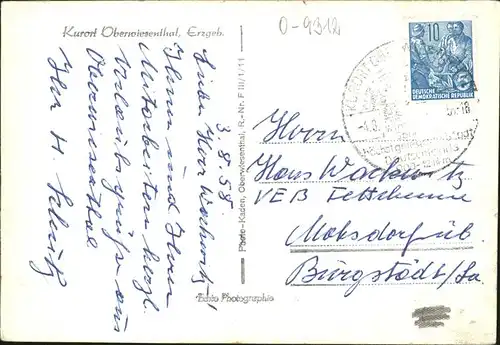 Kurort Oberwiesenthal, Erzgeb.
O-9312
3.8.58.
Lieber Herr Wackwitz!
Ihnen und Ihren
Mitarbeitern herzl.
Urlaubsgrüße aus
Oberwiesenthal
Ihr H. Schulz
Photo-Kaden, Oberwiesenthal, R.-Nr. F III/1/11
Echte Photographie
10
DEUTSCHE
DEMOKRATISCHE REPUBLIK
Herrn
Hans Wackwitz
VEB Fettchemie
Mohsdorf üb
Burgstädt/Sa.